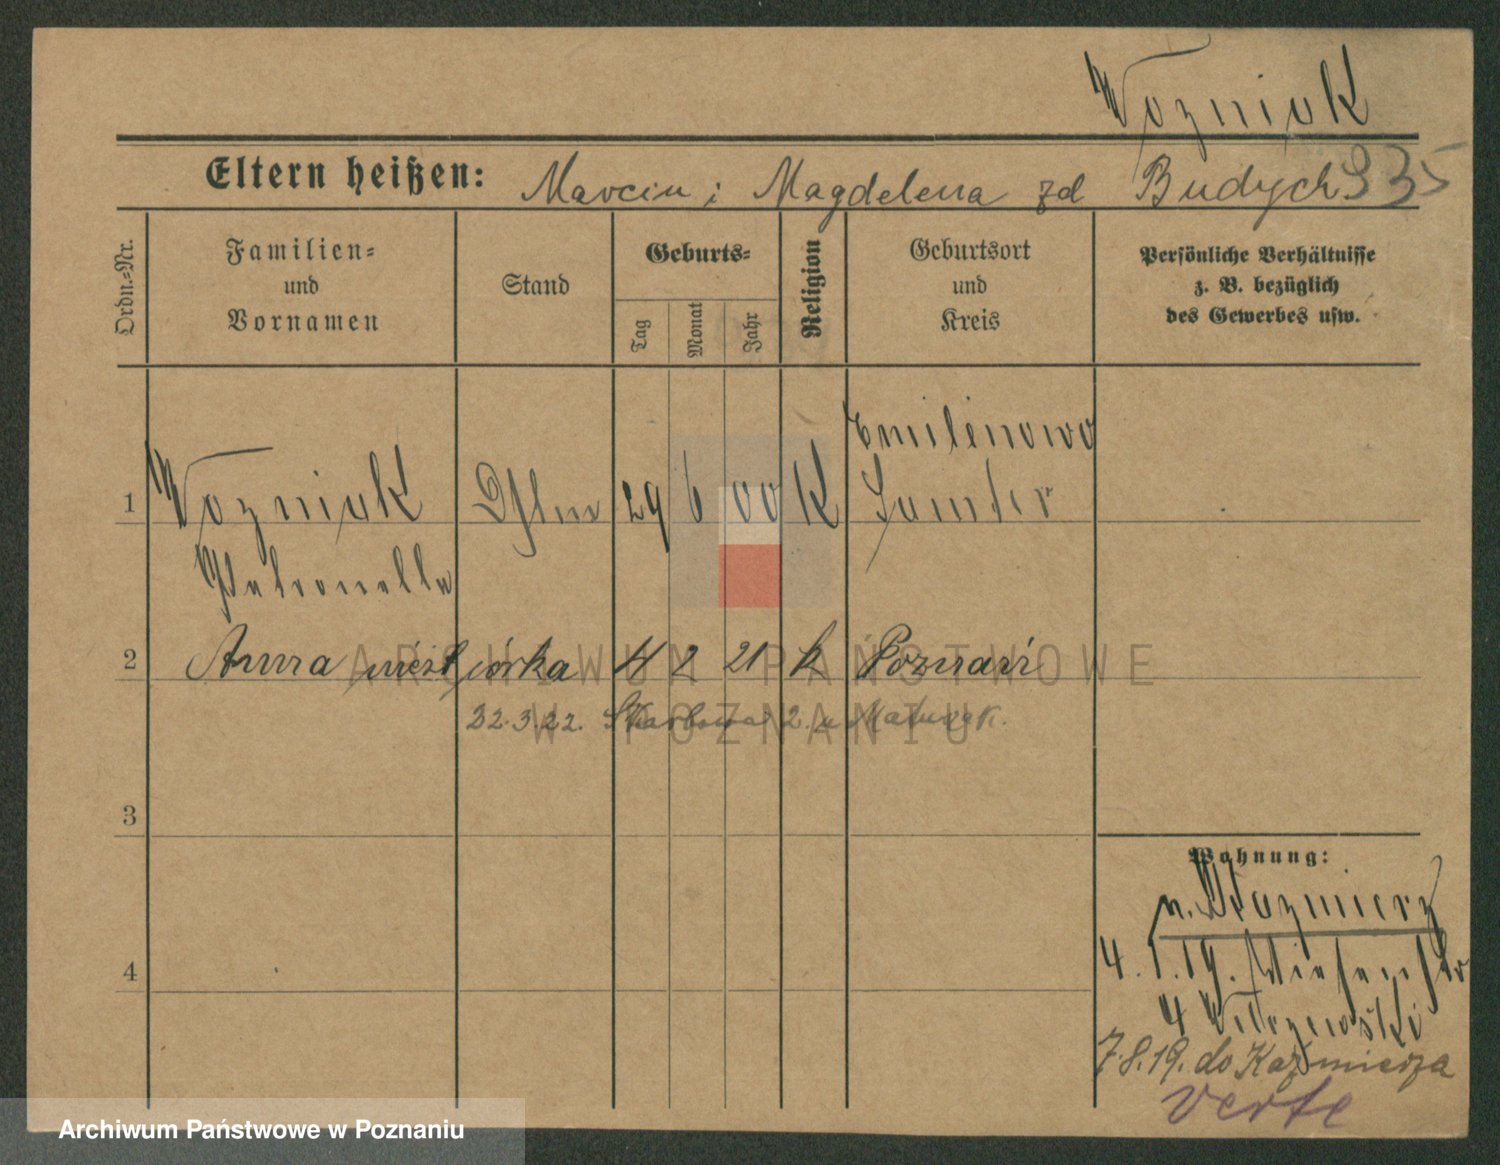 Wozniak
Eltern heißen: Marcin i Magdelena zd Budych 935
Ordn.-Nr.
Familien- und Vornamen
Stand
Geburts-
Tag
Monat
Jahr
Religion
Geburtsort und Kreis
Persönliche Verhältnisse z. B. bezüglich des Gewerbes usw.
Emilienowo
1 Wozniak 29 6 00 K Samter
Petronella
2 Anna nieśl. córka 4 2 21 k Poznań
22.3.22. Skarbowa 2. u
3
4
Wohnung:
n. Kazmierz
4.1.19. Wiesenstr
4
7.8.19. do Kaźmierza
verte
ARCHIWUM PAŃSTWOWE
W POZNANIU
Archiwum Państwowe w Poznaniu